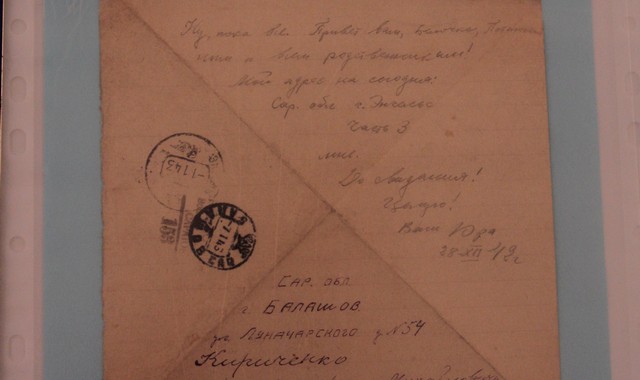 Ну, пока все. Привет вам,
и всем родственникам!
Мой адрес на сегодня:
Сар. обл. г. Энгельс
Часть 3
мне.
До свидания!
Целую!
Ваш Юра
28-XII 42 г
-7 1 43
153
-7 1 43
САР. ОБЛ.
г. БАЛАШОВ
ул ЛУНАЧАРСКОГО д N54
КИРИЧЕНКО